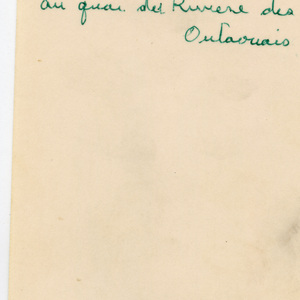 au quai des Rivière des
Outaouais